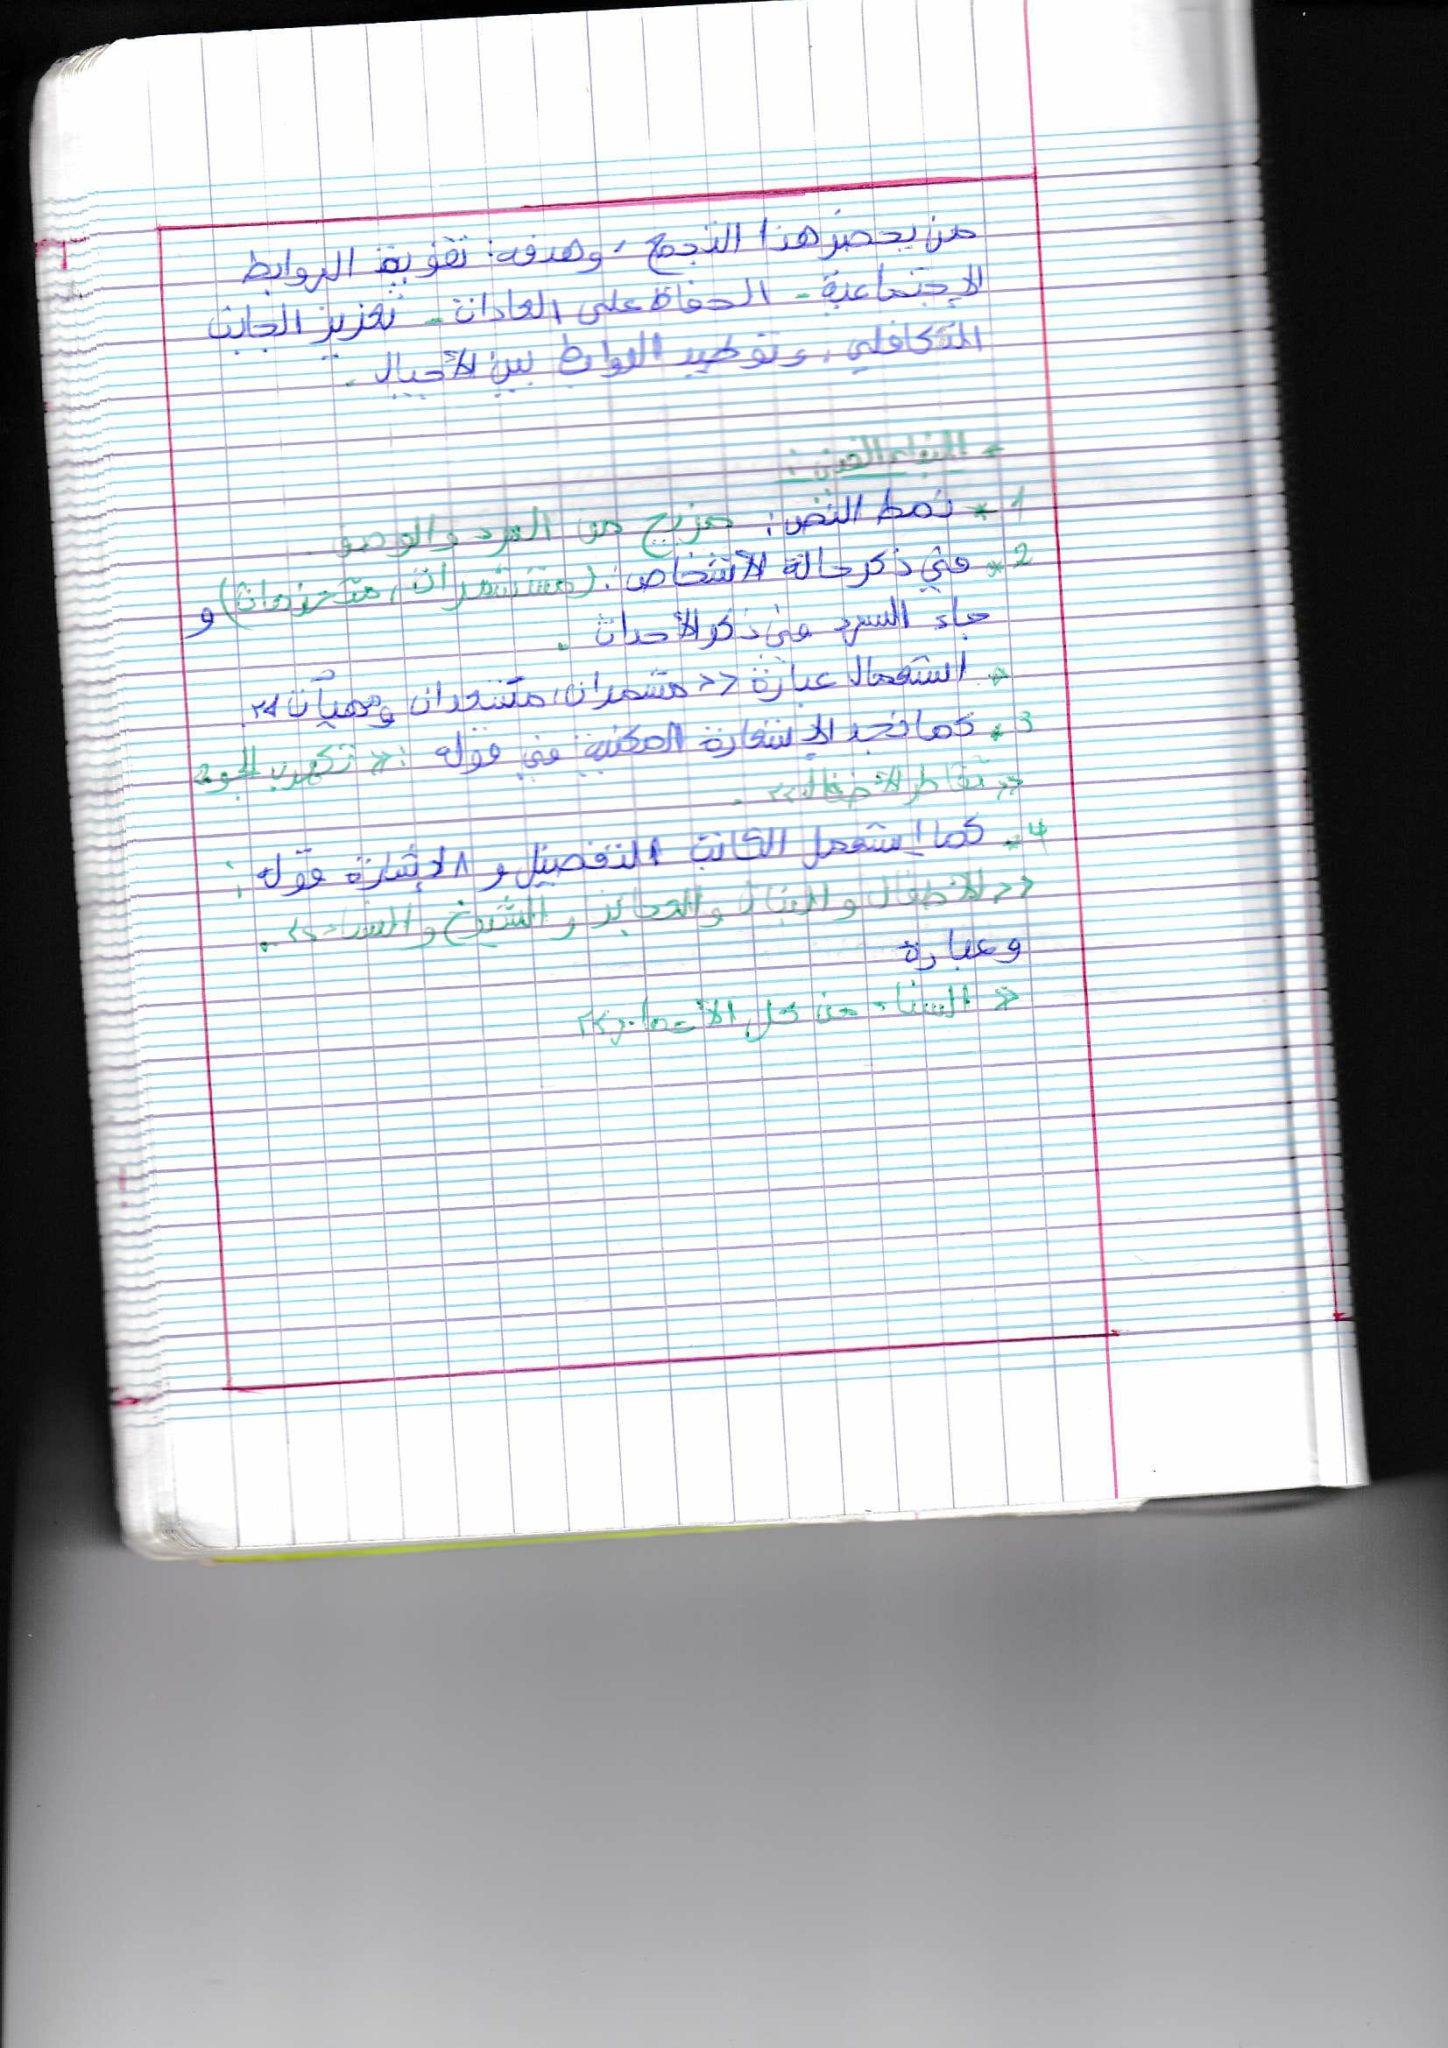 من يحضر هذا التجمع، وهدفه: تقوية الروابط
الإجتماعية - الحفاظ على العادات - تعزيز الجانب
التكافلي، وتوطيد الروابط بين الأجيال.
* البناء الفني:
1 * نمط النص: مزيج من السرد والوصف.
2 * في ذكر حالة الأشخاص: (مستشمرات، متحزمات) و
جاء السرد في ذكر الأحداث.
* استعمال عبارة << مشمرات،
3 * كما نجد الإستعارة المكنية في قوله: << تكهرب الجو >>
<< تقاطر الأطفال >>.
4 * كما إستعمل الكاتب التفصيل و الإشارة قوله:
<< الأطفال والبنات والعجائز والشيوخ والنساء >>.
وعبارة
<< النساء من كل الأعمار >>